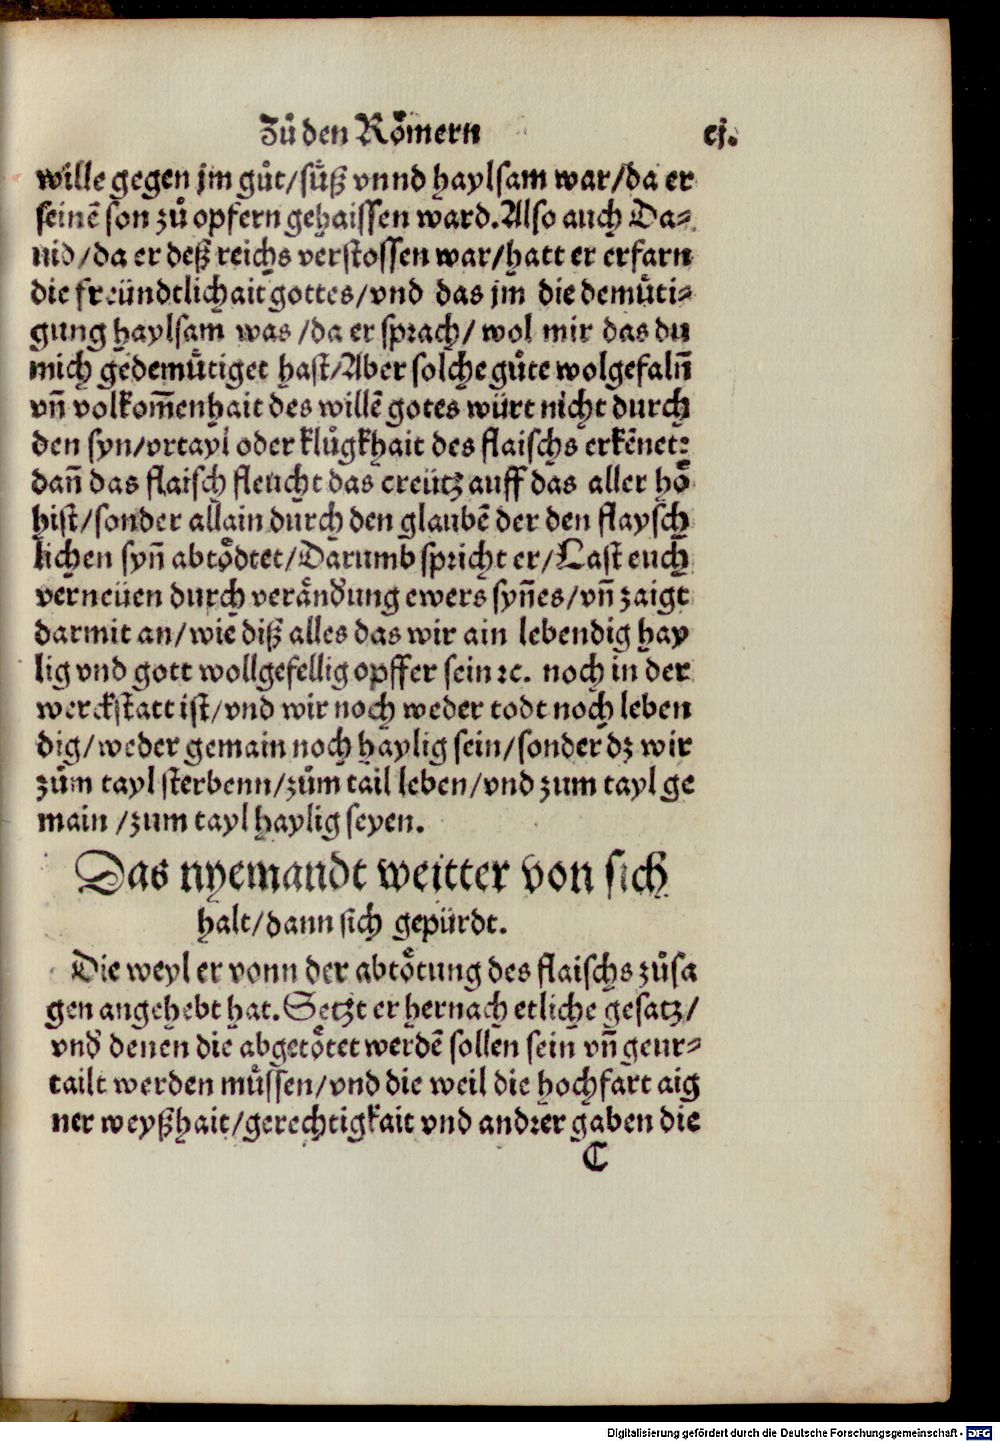 Zů den Römern cj.
wille gegen jm gůt/süß vnnd haylsam war/da er
seinē son zů opfern gehaissen ward. Also auch Da-
uid/da er deß reichs verstossen war/hatt er erfarn
die freündtlichait gottes/vnd das jm die demüti-
gung haylsam was/da er sprach/ wol mir das du
mich gedemütiget hast/Aber solche güte wolgefalñ
vñ volkom̄enhait des willē gotes würt nicht durch
den syn/vrtayl oder klůgkhait des flaischs erkēnet:
dañ das flaisch fleucht das creütz auff das aller hö
hist/sonder allain durch den glaubē der den flaysch
lichen syñ abtödtet/Darumb spricht er/Last euch
verneüen durch verändung ewers syñes/vñ zaigt
darmit an/wie diß alles das wir ain lebendig hay
lig vnd gott wollgefellig opffer sein ꝛc. noch in der
werckstatt ist/vnd wir noch weder todt noch leben
dig/weder gemain noch haylig sein/sonder dz wir
zům tayl sterbenn/zům tail leben/vnd zum tayl ge
main/zum tayl haylig seyen.
Das nyemandt weitter von sich
halt/dann sich gepürdt.
Die weyl er vonn der abtötung des flaischs zůsa
gen angehebt hat. Setzt er hernach etliche gesatz/
vnd denen die abgetötet werdē sollen sein vñ geur-
tailt werden müssen/vnd die weil die hochfart aig
ner weyßhait/gerechtigkait vnd andrer gaben die
C
Digitalisierung gefördert durch die Deutsche Forschungsgemeinschaft - DFG